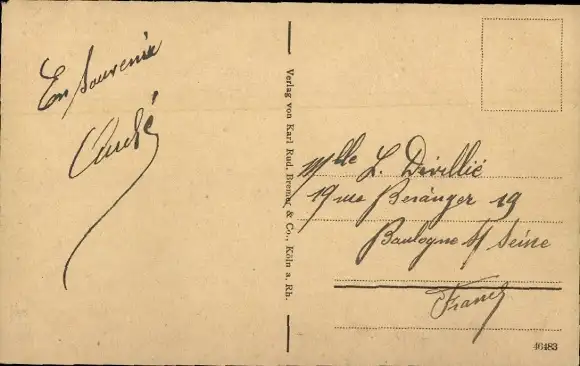 En souvenir
André
Verlag von Karl Rud. Bremer & Co., Köln a. Rh.
Mlle L. Divillié
19 rue Béranger 19
Boulogne s/ Seine
France
46483